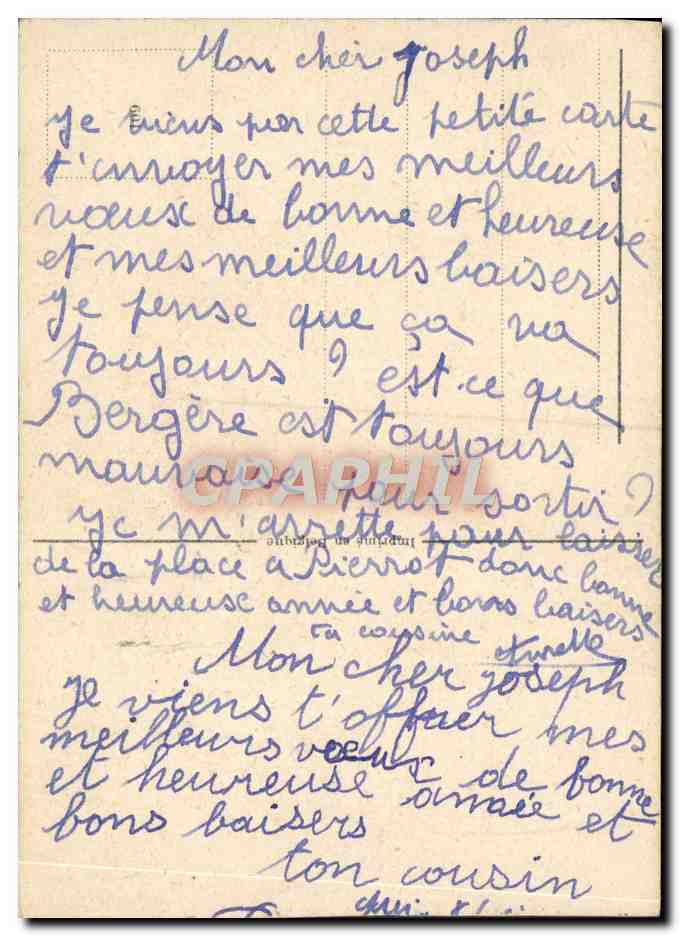 Mon cher Joseph
Je viens par cette petite carte
t'envoyer mes meilleurs
vœux de bonne et heureuse
et mes meilleurs baisers
Je pense que ça va
toujours ? est-ce que
Bergère est toujours
mauvaise pour sortir ?
CPARPHIL
Je m'arrette pour laisser
Imprimé en Belgique
de la place a Pierrot donc bonne
et heureux année et bons baisers
ta cousine
Mon cher Joseph
Je viens t'offrier mes
meilleurs vœux de bonne
et heureuse année et
bons baisers
ton cousin